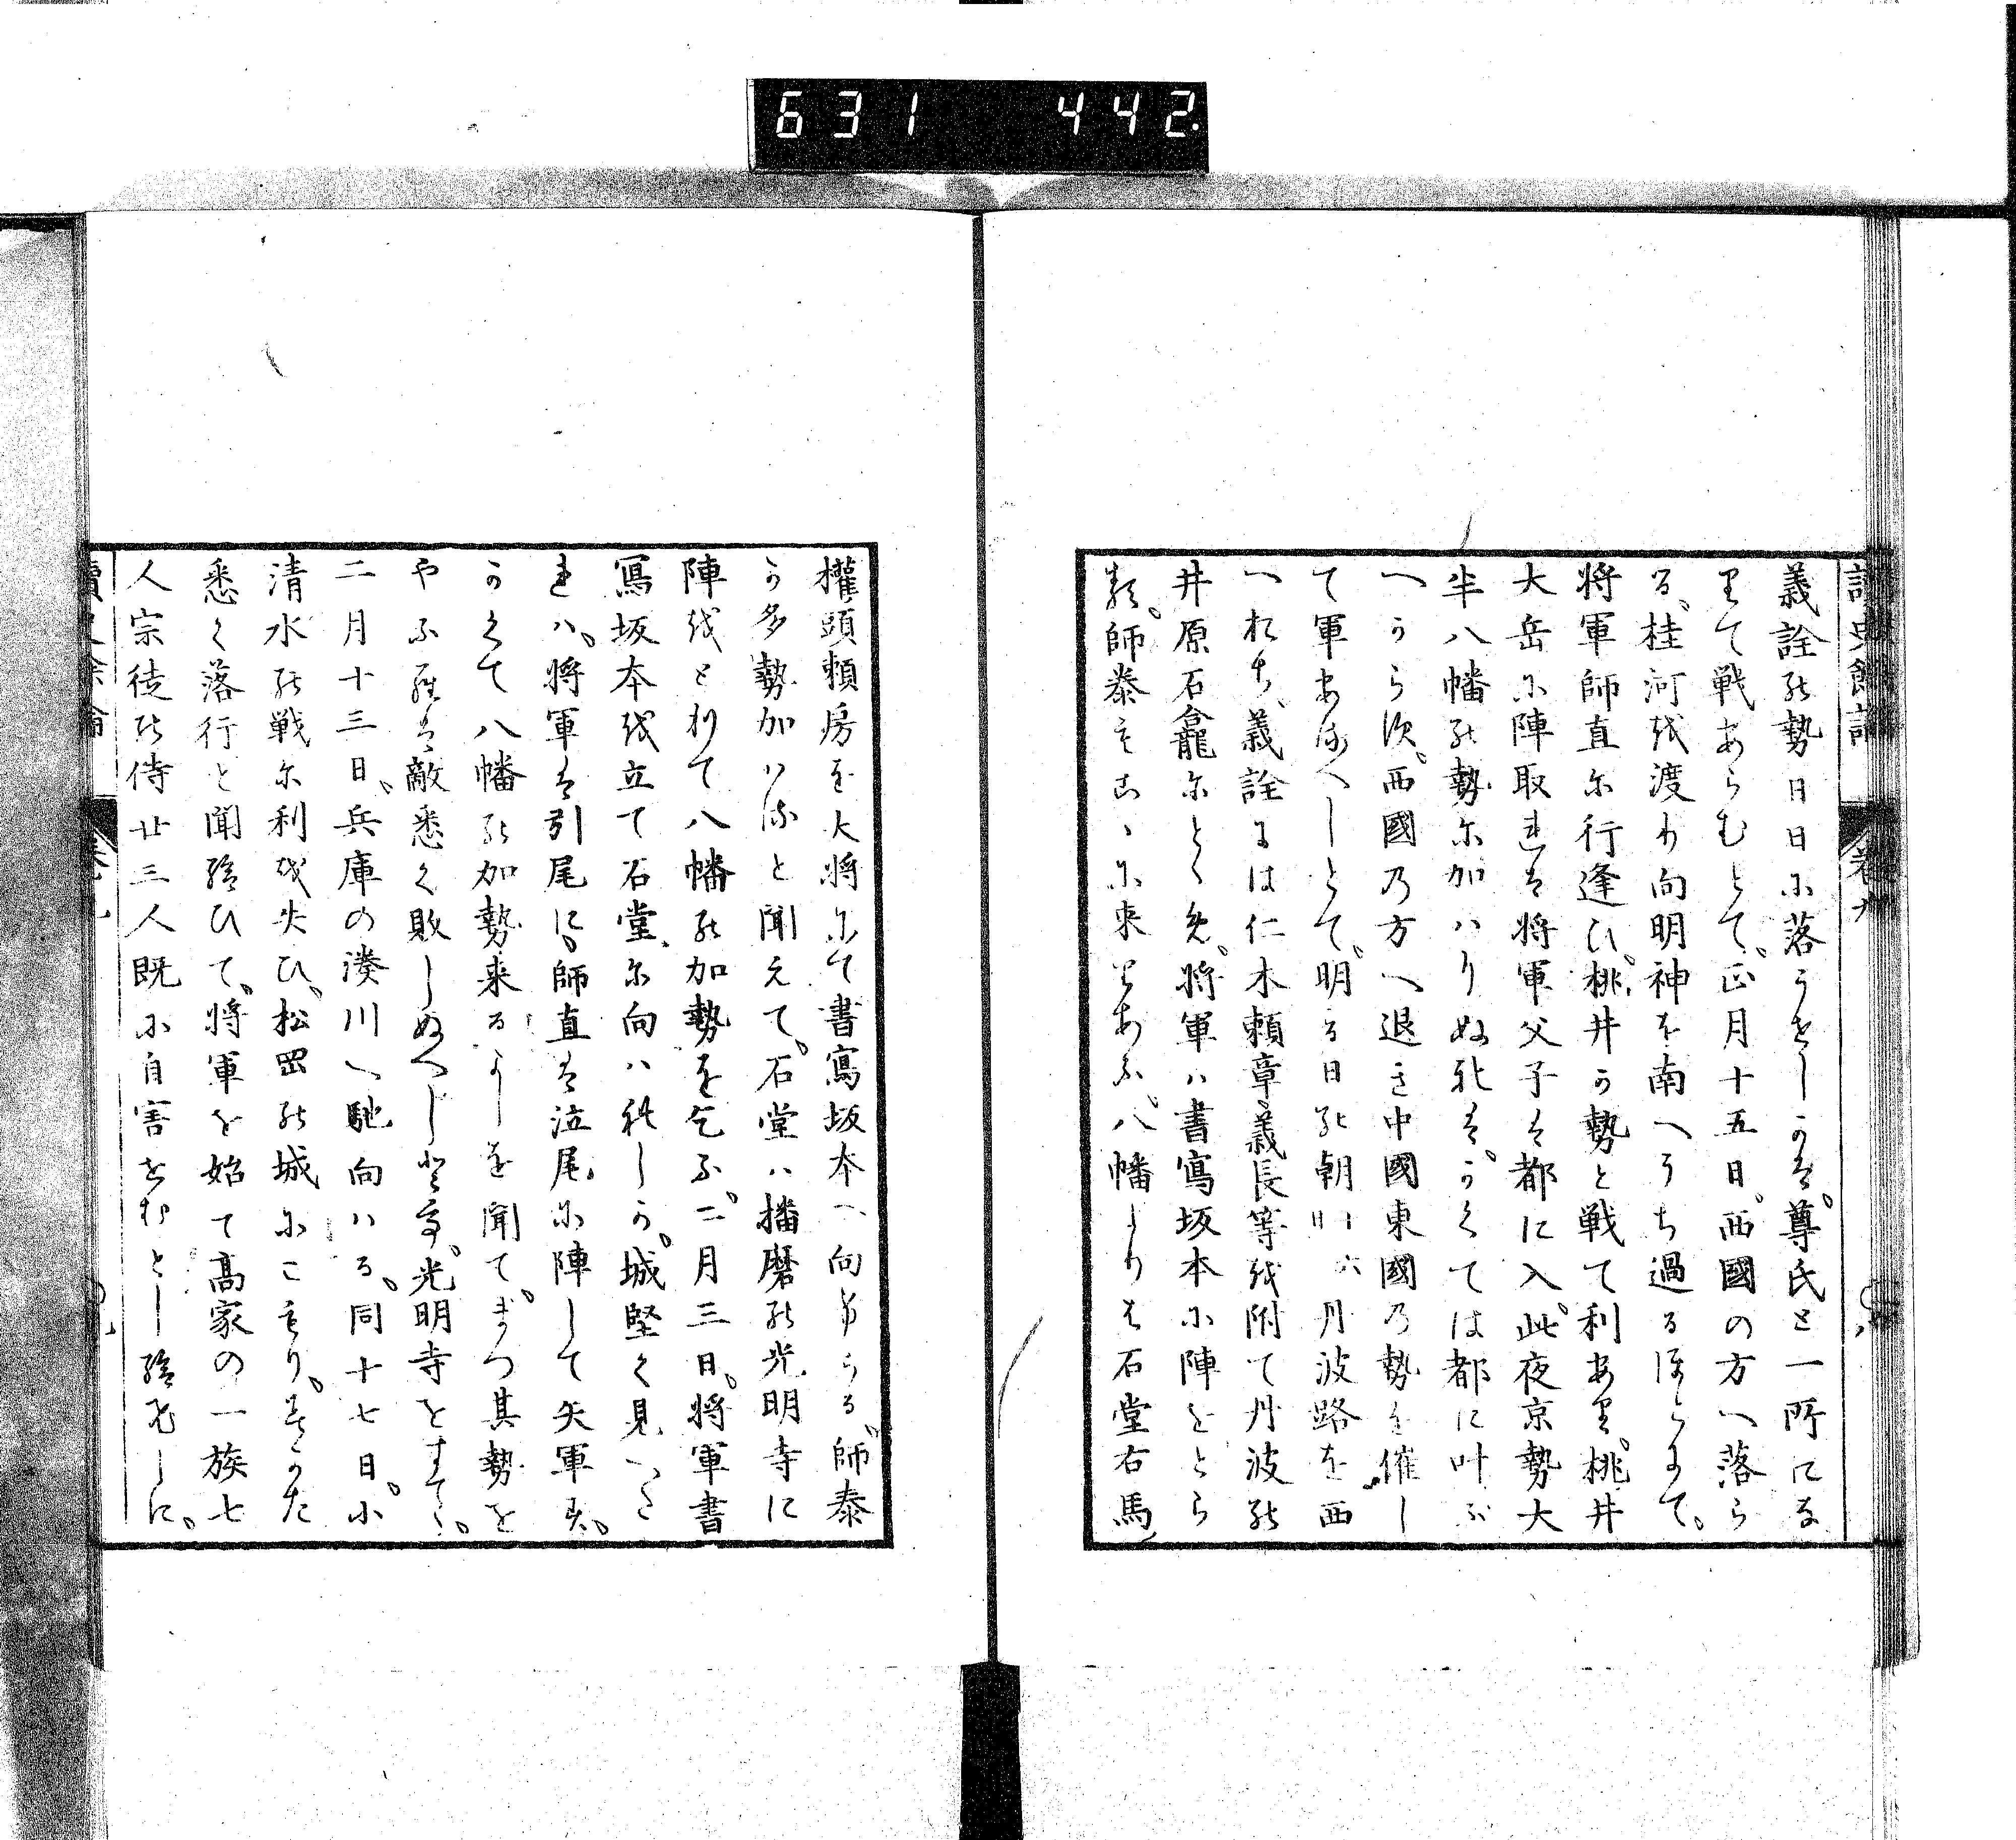 631 442.
讀史餘論 卷九
義詮の勢日日に落うせしかは、尊氏と一所にな
りて戦あらむとて、正月十五日、西國の方へ落ら
る、桂河を渡り向明神を南へうち過るほとにて、
将軍師直に行逢ひ、桃井か勢と戦て利あり、桃井
大岳に陣取れは将軍父子は都に入、此夜京勢大
半八幡の勢に加ハりぬれは、かくては都に叶ふ
へからす、西國乃方へ退き中國東國乃勢を催し
て軍あるへしとて、明る日の朝 丹波路を西
へおち、義詮には仁木頼章義長等を附て丹波の
井原石龕にとゝめ、将軍ハ書寫坂本に陣をとら
る、師泰もこゝに来りあふ、八幡よりは石堂右馬
權頭頼房を大将にて書寫坂本へ向けらる、師泰
か多勢加ハると聞えて、石堂ハ播磨の光明寺に
陣をとりて八幡の加勢を乞ふ、二月三日、将軍書
寫坂本を立て石堂に向ハれしか、城堅く見へた
れハ、将軍は引尾に、師直は泣尾に陣して矢軍す、
かくて八幡の加勢来るよしを聞て、まつ其勢を
やふらは敵悉く敗しぬへしとて、光明寺をすてゝ、
二月十三日、兵庫の湊川へ馳向ハる、同十七日、小
清水の戦に利を失ひ、松岡の城にこもり、みかた
悉く落行と聞給ひて、将軍を始て高家の一族七
人宗徒の侍廿三人既に自害せむとし給ひしに、
讀史餘論 卷九